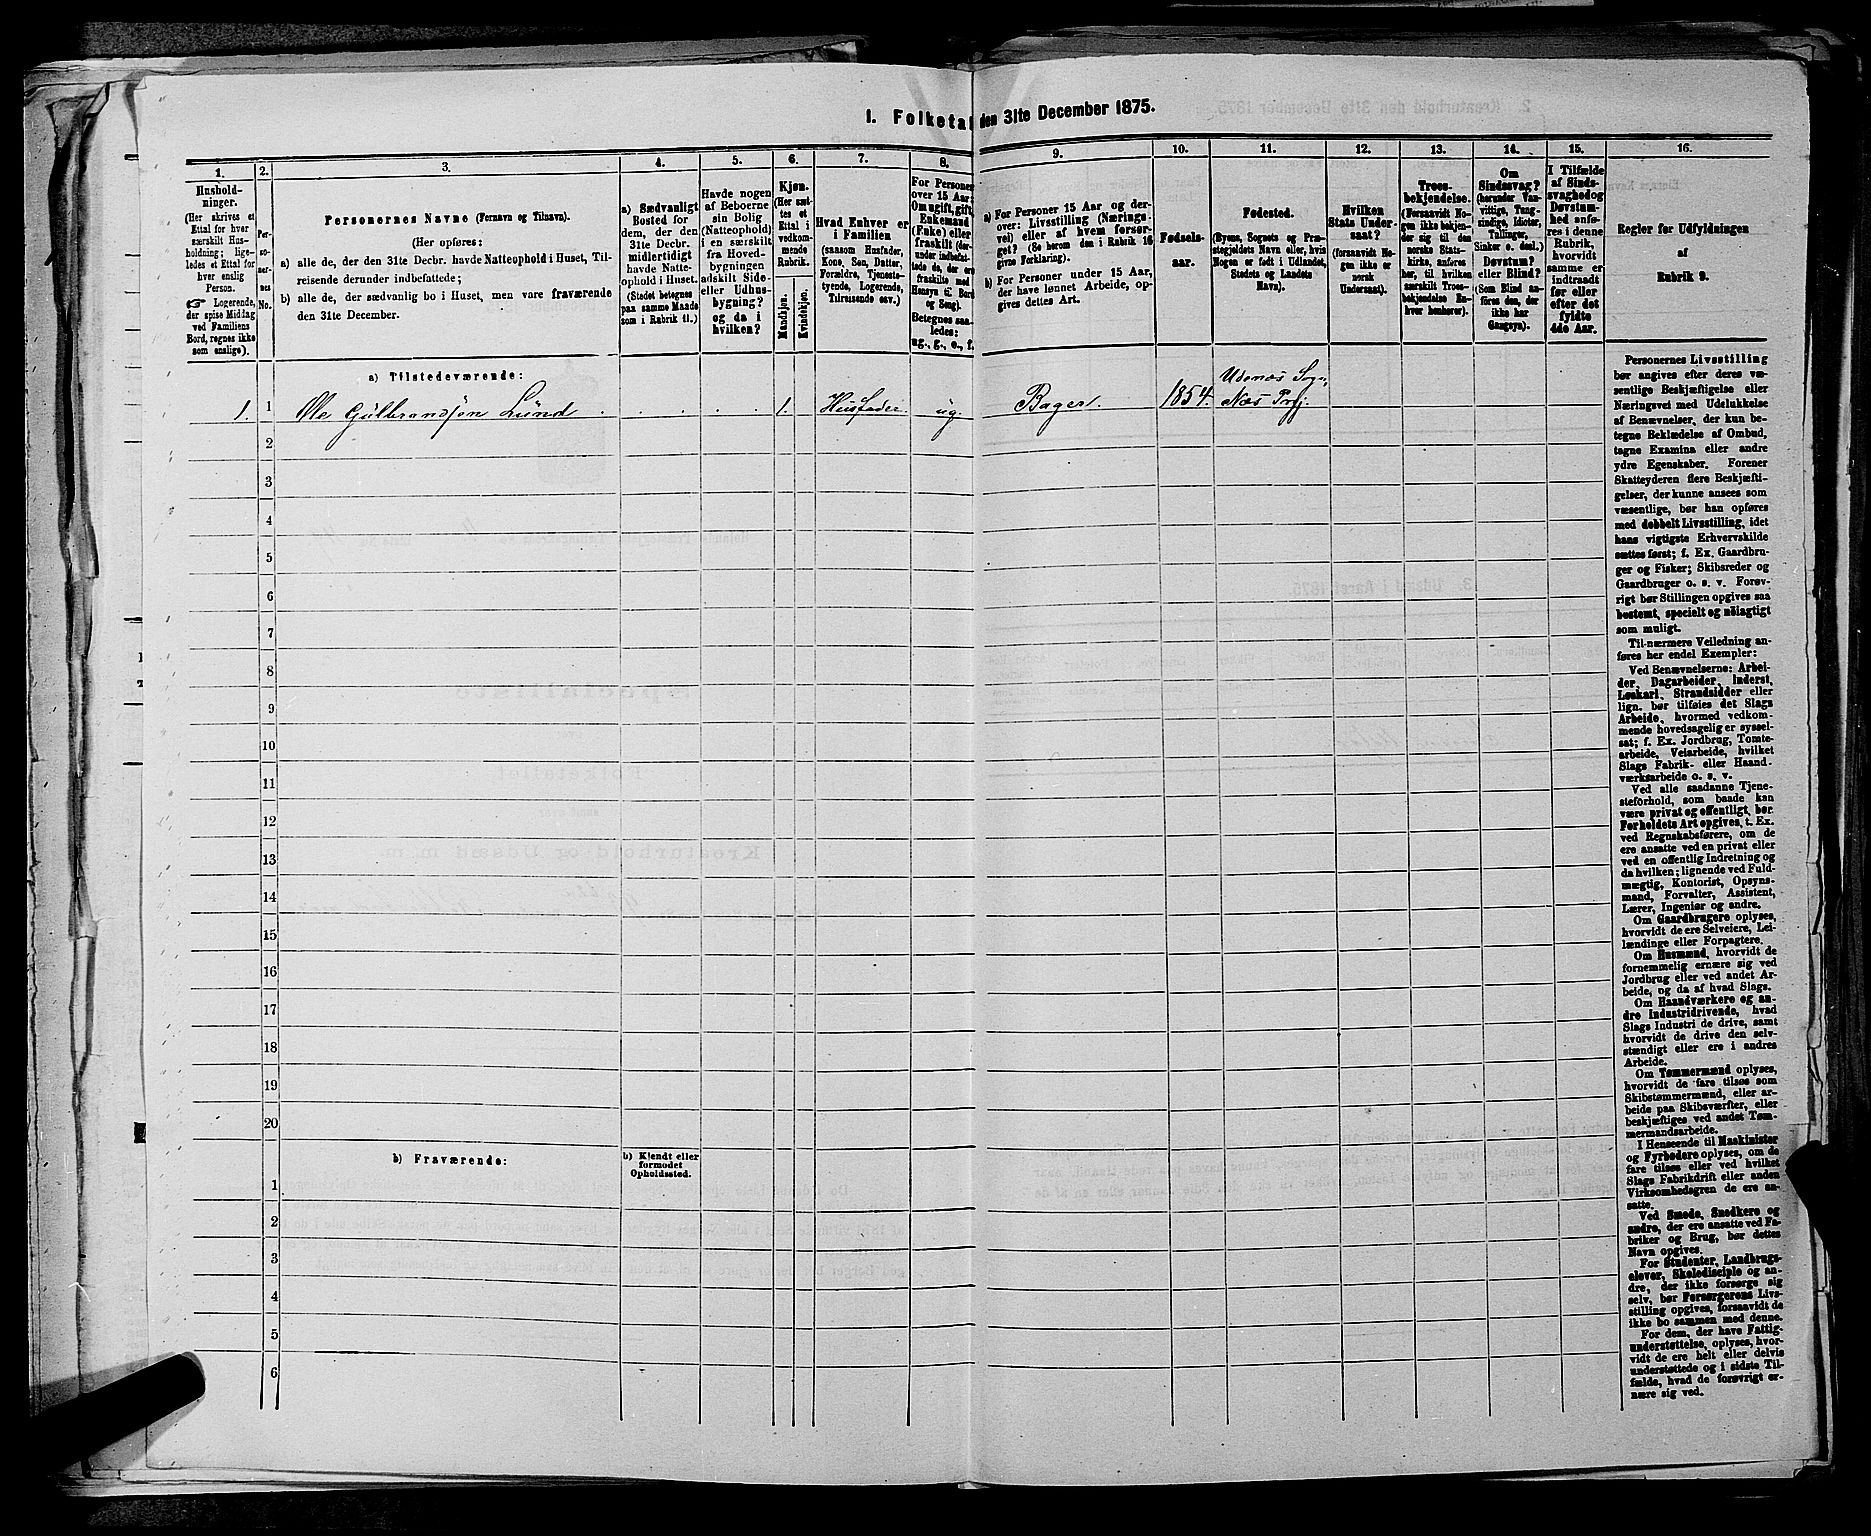 1. Folketal den 31te December 1875.
1.
2.
3.
4.
5.
6.
7.
8.
9.
10.
11.
12.
13.
14.
15.
16.
Hushold-
ninger.
(Her skrives et
Ettal for hver
særskilt Hus-
holdning; lige-
ledes et Ettal for
hver enslig
Person.
☞ Logerende,
der spise Middag
ved Familiens
Bord, regnes ikke
som enslige).
Per-
so-
ner-
nes
No.
Personernes Navne (Fornavn og Tilnavn).
(Her opføres:
a) alle de, der den 31te Decbr. havde Natteophold i Huset, Til-
reisende derunder indbefattede;
b) alle de, der sædvanlig bo i Huset, men vare fraværende
den 31te December.
a) Sædvanligt
Bosted for
dem, der den
31te Decbr.
midlertidigt
havde Natte-
ophold i Huset.
(Stedet betegnes
paa samme Maade
som i Rubrik 11.)
Havde nogen
af Beboerne
sin Bolig
(Natteophold)
i en særskilt
fra Hoved-
bygningen
adskilt Side-
eller Udhus-
bygning?
og da i
hvilken?
Kjøn.
(Her sæt-
tes et
Ettal i
vedkom-
mende
Rubrik.
Mandkjøn.
Kvindekjøn.
Hvad Enhver er
i Familien
(saasom Husfader,
Kone, Søn, Datter,
Forældre, Tjeneste-
tyende, Logerende,
Tilreisende osv.)
For Personer
over 15 Aar:
Om ugift, gift,
Enkemand
(Enke) eller
fraskilt (der-
under indbefat-
tede de, der ere
fraskilte med
Hensyn til Bord
og Seng).
Betegnes saa-
ledes:
ug., g., e., f.
a) For Personer 15 Aar og der-
over: Livsstilling (Nærings-
vei) eller af hvem forsør-
get? (Se herom den i Rubrik 16
givne Forklaring).
b) For Personer under 15 Aar,
der have lønnet Arbeide, op-
gives dettes Art.
Fødsels-
aar.
Fødested.
(Byens, Sognets og Præ-
stegjeldets Navn eller, hvis
Nogen er født i Udlandet,
Stedets og Landets
Navn).
Hvilken
Stats Under-
saat?
(forsaavidt No-
gen ikke er
norsk
Undersaat).
Troes-
bekjendelse.
(Forsaavidt No-
gen ikke bekjen-
der sig til den
norske Stats-
kirke, anføres
her, til hvilken
særskilt Troes-
bekjendelse En-
hver henhører).
Om
Sindssvag?
(herunder Van-
vittige, Tung-
sindige, Idioter,
Tullinger,
Sinker o. desl.)
Døvstum?
eller Blind?
(Som Blind an-
føres den, der
ikke har
Gangsyn).
I Tilfælde
af Sinds-
svaghed og
Døvstum-
hed anfø-
res i denne
Rubrik,
hvorvidt
samme er
indtraadt
før eller
efter det
fyldte
4de Aar.
Regler for Udfyldningen
af
Rubrik 9.
a) Tilstedeværende:
1. 1 Ole Gulbrandsen Lund . . . . 1. Husfader ug. Bager. 1854. Udenæs Sogn, Næs Prgj.
2
3
4
5
6
7
8
9
10
11
12
13
14
15
16
17
18
19
20
b) Fraværende:
b) Kjendt eller
formodet
Opholdssted.
1
2
3
4
5
6
Personernes Livsstilling
bør angives efter deres væ-
sentlige Beskjæftigelse eller
Næringsvei med Udelukkelse
af Benævnelser, der kun be-
tegne Beklædelse af Ombud,
tagne Examina eller andre
ydre Egenskaber. Forener
Skatteyderen flere Beskjæfti-
gelser, der kunne ansees som
væsentlige, bør han opføres
med dobbelt Livsstilling, idet
hans vigtigste Erhvervskilde
sættes først; f. Ex. Gaardbru-
ger og Fisker; Skibsreder og
Gaardbruger o. s. v. Forøv-
rigt bør Stillingen opgives saa
bestemt, specielt og nøiagtigt
som muligt.
Til nærmere Veiledning an-
føres her endel Exempler:
Ved Benævnelserne: Arbei-
der, Dagarbeider, Inderst,
Løskarl, Strandsidder eller
lign. bør tilføies det Slags
Arbeide, hvormed vedkom-
mende hovedsagelig er syssel-
sat; f. Ex. Jordbrug, Tomte-
arbeide, Veiarbeide, hvilket
Slags Fabrik- eller Haand-
værksarbeide o. s. v.
Ved alle saadanne Tjene-
steforhold, som baade kan
være privat og offentligt, bør
Forholdets Art opgives, t. Ex.
ved Regnskabsførere, om de
ere ansatte ved en privat eller
ved en offentlig Indretning og
da hvilken; lignende ved Fuld-
mægtig, Kontorist, Opsyns-
mand, Forvalter, Assistent,
Lærer, Ingeniør og andre.
Om Gaardbrugere oplyses,
hvorvidt de ere Selveiere, Lei-
lændinge eller Forpagtere.
Om Husmænd, hvorvidt de
fornemmelig ernære sig ved
Jordbrug eller ved andet Ar-
beide, og da af hvad Slags.
Om Haandværkere og an-
dre Industridrivende, hvad
Slags Industri de drive, samt
hvorvidt de drive den selv-
stændigt eller ere i andres
Arbeide.
Om Tømmermænd oplyses,
hvorvidt de fare tilsøs som
Skibstømmermænd, eller ar-
beide paa Skibsværfter, eller
beskjæftiges ved andet Tøm-
mermandsarbeide.
I Henseende til Maskinister
og Fyrbødere oplyses, om de
fare tilsøs eller ved hvilket
Slags Fabrikdrift eller anden
Virksomhedsgren de ere an-
satte.
Ved Smede, Snedkere og
andre, der ere ansatte ved Fa-
briker og Brug, bør dettes
Navn opgives.
For Studenter, Landbrugs-
elever, Skoledisciple og an-
dre, der ikke forsørge sig
selv, bør Forsørgerens Livs-
stilling opgives, forsaavidt de
ikke bo sammen med denne.
For dem, der have Fattig-
understøttelse, oplyses, hvor-
vidt de ere helt eller delvis
understøttede og i sidste Til-
fælde, hvad de forøvrigt er-
nære sig ved.